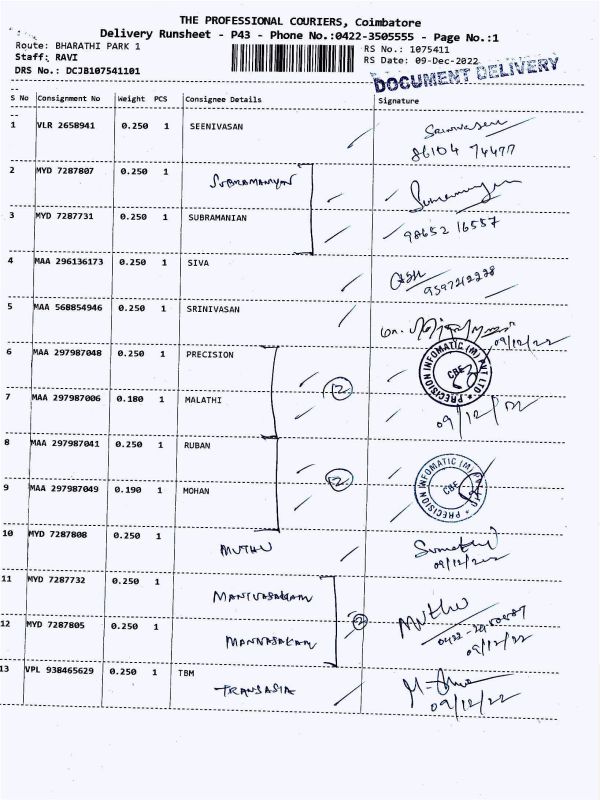 THE PROFESSIONAL COURIERS, Coimbatore
Delivery Runsheet - P43 - Phone No.:0422-3505555 - Page No.:1
Route: BHARATHI PARK 1
RS No.: 1075411
Staff: RAVI
RS Date: 09-Dec-2022
DRS No.: DCJB107541101
DOCUMENT DELIVERY
--
S No Consignment No Weight PCS Consignee Details Signature
--
1 VLR 2658941 0.250 1 SEENIVASAN
86104 74477
2 MYD 7287807 0.250 1 SUBRAMANIYAN
3 MYD 7287731 0.250 1 SUBRAMANIAN
98652 16557
4 MAA 296136173 0.250 1 SIVA
9597212228
5 MAA 568854946 0.250 1 SRINIVASAN
09/12/22
6 MAA 297987048 0.250 1 PRECISION
PRECISION INFOMATIC (M) PVT LTD. * CBE
2
7 MAA 297987006 0.180 1 MALATHI
09/12/22
8 MAA 297987041 0.250 1 RUBAN
2
PRECISION INFOMATIC (M) PVT LTD * CBE
9 MAA 297987049 0.190 1 MOHAN
10 MYD 7287808 0.250 1 MUTHU
09/12/22
11 MYD 7287732 0.250 1
Muthu
12 MYD 7287805 0.250 1
2
09/12/22
13 VPL 938465629 0.250 1 TBM
TRANSASIA
09/12/22